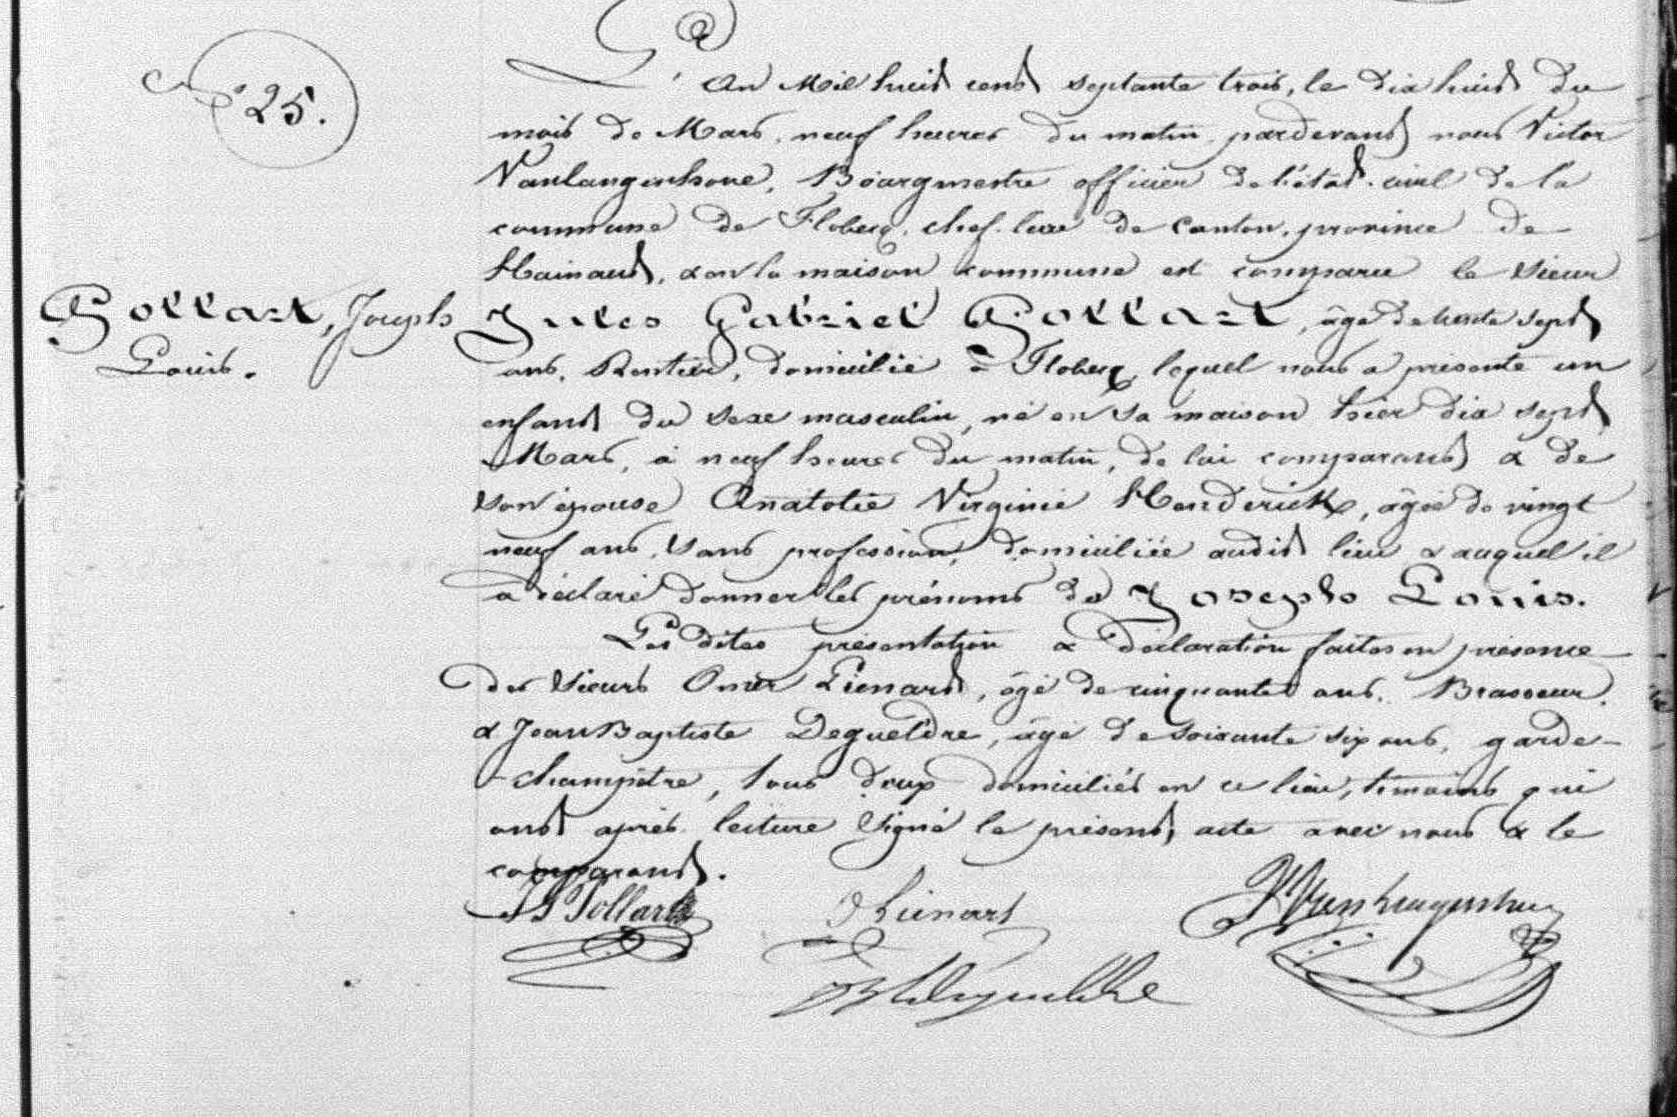 N° 25.
Pollart, Joseph
Louis.
L'an Mil huit cent septante trois, le dix huit du
mois de Mars, neuf heures du matin, pardevant nous Victor
Vanlangenhove, Bourgmestre officier de l'état-civil de la
commune de Flobecq, chef-lieu de canton, province de
Hainaut, & en la maison commune est comparu le sieur
Jules Gabriel Pollart, âgé de trente sept
ans, Rentier, domicilié à Flobecq, lequel nous a présenté un
enfant du sexe masculin, né en sa maison hier dix sept
Mars, à neuf heures du matin, de lui comparant & de
son épouse Anatolie Virginie Henderickx, âgée de vingt
neuf ans, sans profession, domiciliée audit lieu & auquel il
a déclaré donner les prénoms de Joseph Louis.
Les dites présentation & déclaration faites en présence
des sieurs Omer Lienart, âgé de cinquante ans, Brasseur,
& Jean Baptiste Degueldre, âgé de soixante six ans, garde-
-champêtre, tous deux domiciliés en ce lieu, témoins qui
ont après lecture signé le présent acte avec nous & le
comparant.
J G Pollart
O Lienart
V Vanlangenhove
JB Degueldre